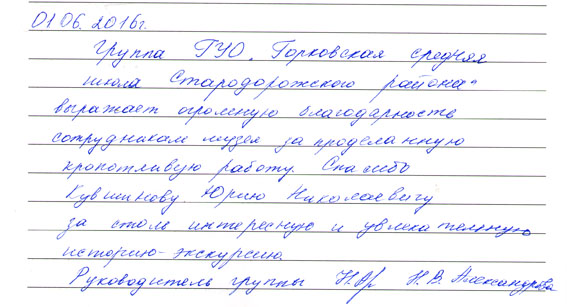 01.06.2016г.
Группа ГУО „Горковская средняя
школа Стародорожского района"
выражает огромную благодарность
сотрудникам музея за проделанную
кропотливую работу. Спасибо
Кувшинову Юрию Николаевичу
за столь интересную и увлекательную
историю-экскурсию.
Руководитель группы Н.В. Александрова